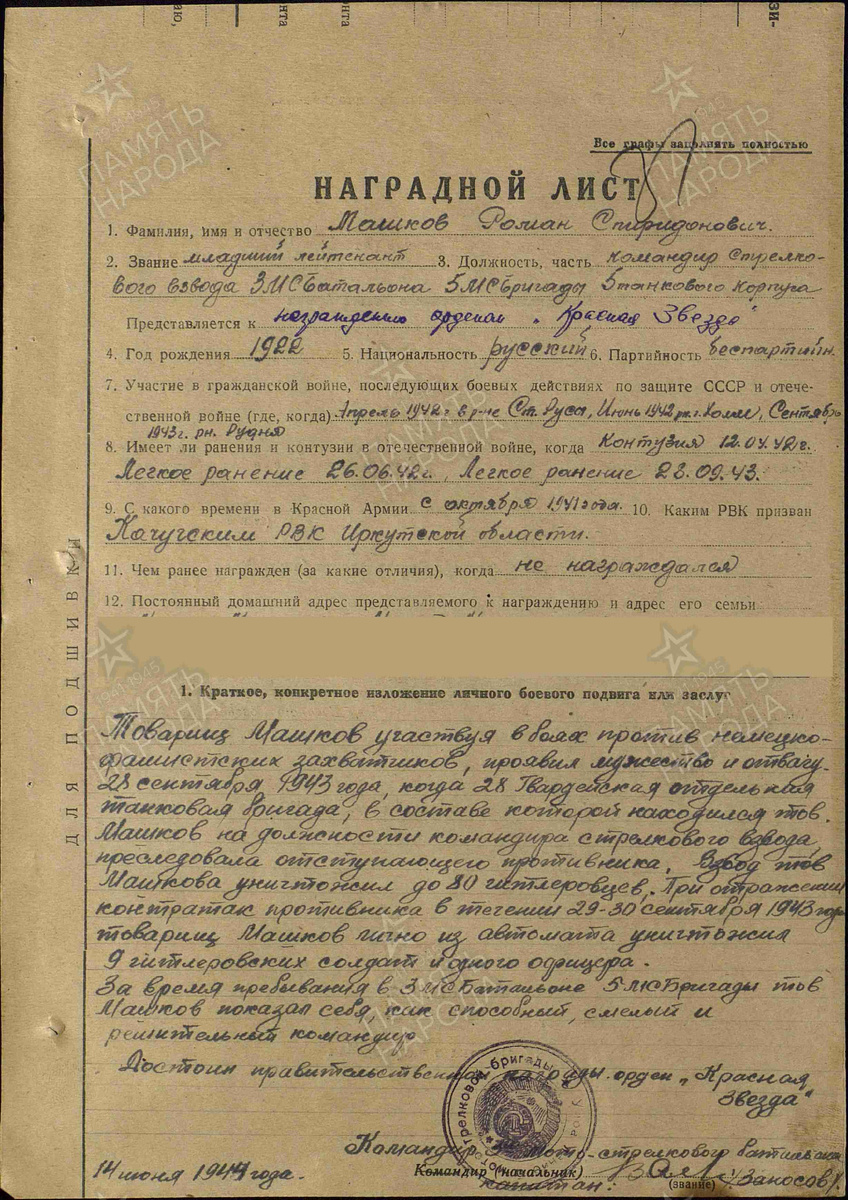 Все графы заполнять полностью
НАГРАДНОЙ ЛИСТ
1. Фамилия, имя и отчество Машков Роман Спиридонович.
2. Звание младший лейтенант 3. Должность, часть командир стрелко-
вого взвода 3МСБатальона 5МСБригады 5танкового корпуса
Представляется к награждению орденом „Красная Звезда"
4. Год рождения 1922 5. Национальность русский 6. Партийность беспартийн.
7. Участие в гражданской войне, последующих боевых действиях по защите СССР и отече-
ственной войне (где, когда) Апрель 1942 г в р-не Ст. Руса, Июнь 1942 рн. г. Холм, Сентябрь
1943г. рн. Рудня
8. Имеет ли ранения и контузии в отечественной войне, когда Контузия 12.04.42г.
Легкое ранение 26.06.42г., Легкое ранение 28.09.43.
9. С какого времени в Красной Армии с октября 1941 года. 10. Каким РВК призван
Качугским РВК Иркутской области.
11. Чем ранее награжден (за какие отличия), когда не награждался
12. Постоянный домашний адрес представляемого к награждению и адрес его семьи
1. Краткое, конкретное изложение личного боевого подвига или заслуг
Товарищ Машков участвуя в боях против немецко-
фашистских захватчиков, проявил мужество и отвагу.
28 сентября 1943 года, когда 28 Гвардейская отдельная
танковая бригада, в составе которой находился тов.
Машков на должности командира стрелкового взвода,
преследовала отступающего противника. Взвод тов
Машкова уничтожил до 80 гитлеровцев. При отражении
контратак противника в течении 29-30 сентября 1943 года
товарищ Машков лично из автомата уничтожил
9 гитлеровских солдат и одного офицера.
За время пребывания в 3МСБатальоне 5МСБригады тов
Машков показал себя, как способный, смелый и
решительный командир
Достоин правительственной награды орден „Красная
Звезда"
Командир 3 мото-стрелкового батальона
14 июня 1944 года. Командир (начальник)
капитан: (звание) /Заносов/.
ДЛЯ ПОДШИВКИ
ПАМЯТЬ НАРОДА
1941-1945